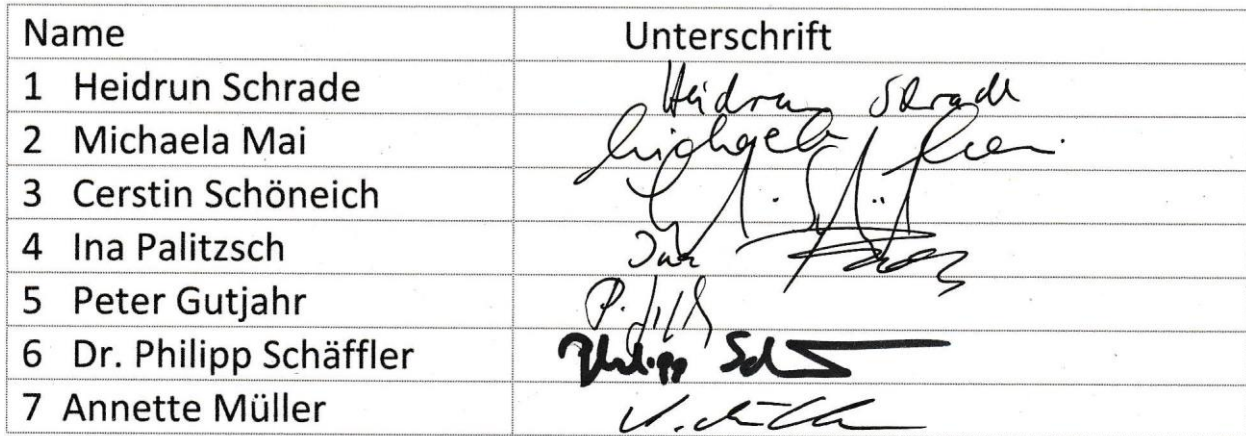 Name Unterschrift
1 Heidrun Schrade Heidrun Schrade
2 Michaela Mai Michaela Mai
3 Cerstin Schöneich
4 Ina Palitzsch Ina
5 Peter Gutjahr P.
6 Dr. Philipp Schäffler Philipp
7 Annette Müller